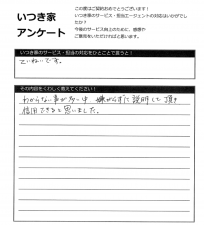 いつき家
アンケート
この度はご契約おめでとうございます！
いつき家のサービス・担当エージェントの対応はいかがでし
たか？
今後のサービス向上のために、感想や
ご意見をいただければと思います。
いつき家のサービス・担当の対応をひとことで言うと！
ていねいです。
その内容をくわしく教えてください！
わからない事が多い中 嫌がらずに説明して頂き
信用できると思いました。